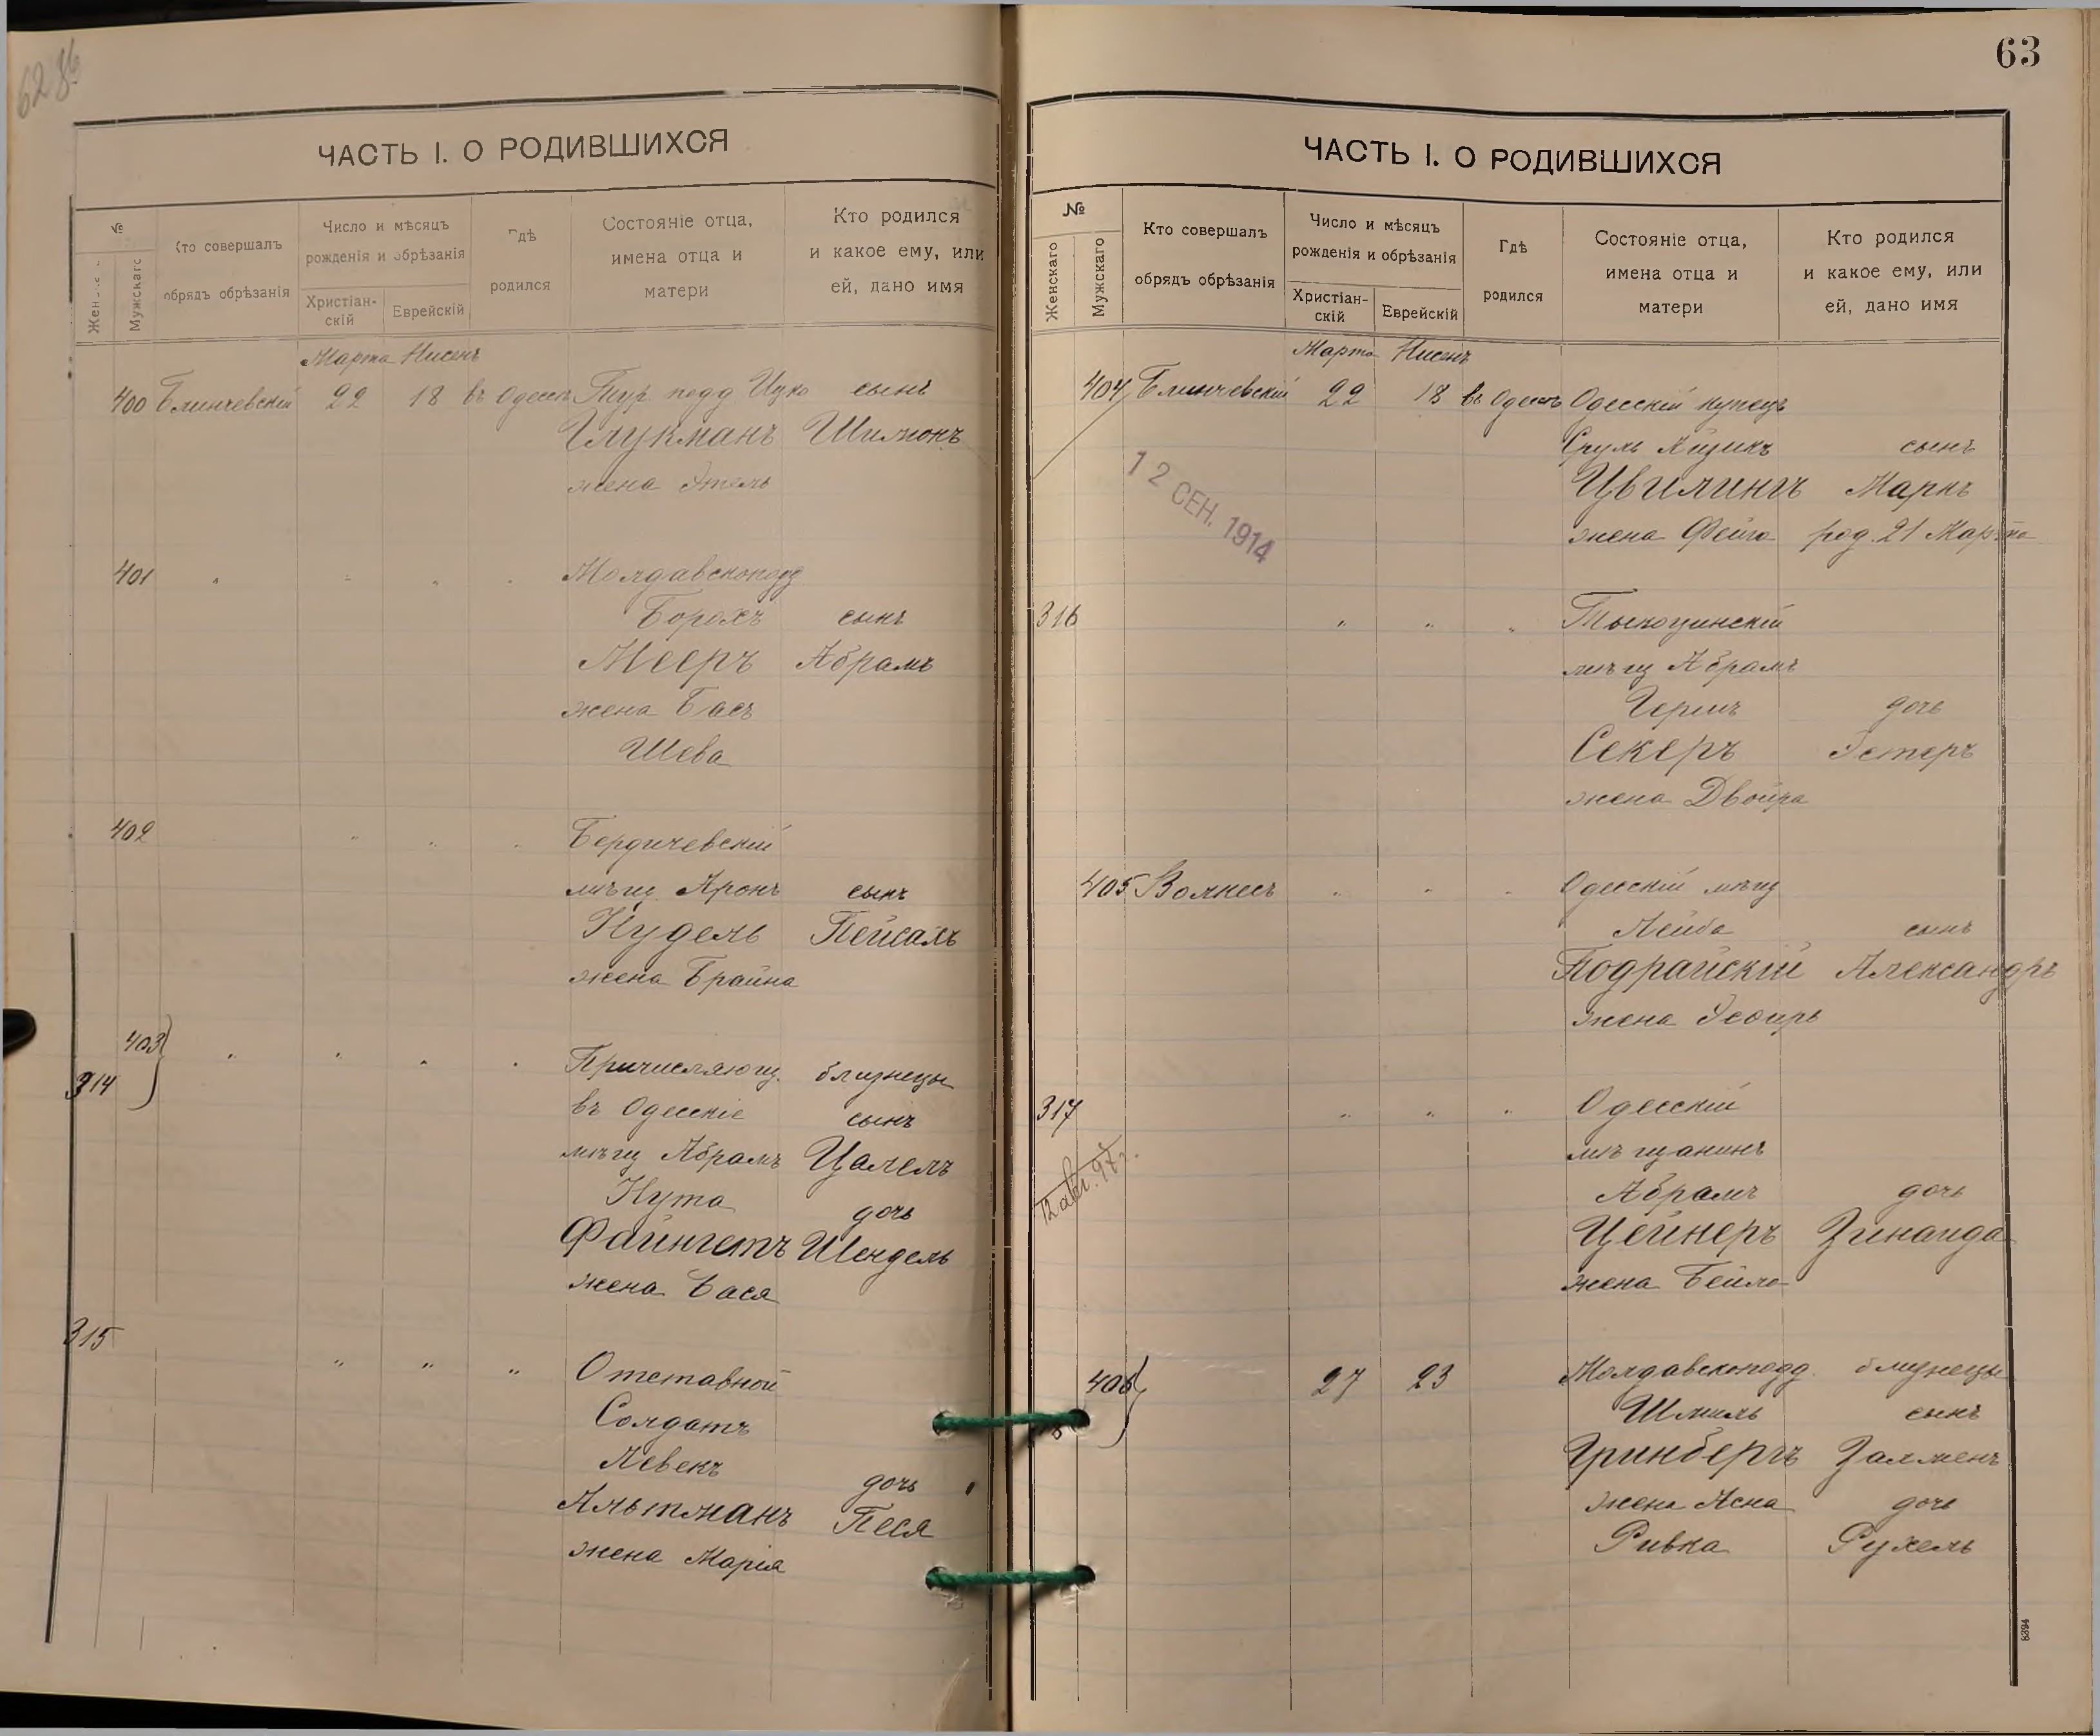 62 об
ЧАСТЬ I. О РОДИВШИХСЯ
№
Женс
Мужскаго
Кто совершалъ
обрядъ обрѣзанія
Число и мѣсяцъ
рожденія и обрѣзанія
Христіан-
скій
Еврейскій
Гдѣ
родился
Состояніе отца,
имена отца и
матери
Кто родился
и какое ему, или
ей, дано имя
Марта Нисенъ
400 Блинчевскій 22 18 въ Одессѣ Тур подд Ицко сынъ
Глукманъ Шимонъ
жена Этель
401 " " " " Молдавскоподд
Борохъ сынъ
Мееръ Абрамъ
жена Басъ
Шева
402 " " " Бердичевскій
мѣщ Аронъ сынъ
Нудель Пейсахъ
жена Брайна
403
314 " " " " Причисляющ. близнецы
въ Одесскіе сынъ
мѣщ Абрамъ Цалелъ
Нута дочь
Файнгетъ Шендель
жена Бася
315 " " " Отставной
Солдатъ
Левекъ
дочь
Альтманъ Песя
жена Марія
63
ЧАСТЬ I. О РОДИВШИХСЯ
№
Женскаго
Мужскаго
Кто совершалъ
обрядъ обрѣзанія
Число и мѣсяцъ
рожденія и обрѣзанія
Христіан-
скій
Еврейскій
Гдѣ
родился
Состояніе отца,
имена отца и
матери
Кто родился
и какое ему, или
ей, дано имя
Марта Нисенъ
404 Блинчевскій 22 18 въ Одессѣ Одесскій купецъ
Сруль Айзикъ сынъ
Цвилингъ Маркъ
жена Фейга род. 21 Марта
12 СЕН. 1914
316 " " " Тыкоцинскій
мѣщ Абрамъ
Гершъ дочь
Секеръ Эстеръ
жена Двойра
405 Волнесъ " " " Одесскій мѣщ
Лейба сынъ
Подрайскій Александръ
жена Эсѳирь
317 " " " Одесскій
мѣщанинъ
12 авг. 97г.
Абрамъ дочь
Цейнеръ Зинаида
жена Бейла
406 27 23 Молдавскоподд. близнецы
Шмиль сынъ
Гринбергъ Залменъ
жена Асна дочь
Ривка Рухель
8394